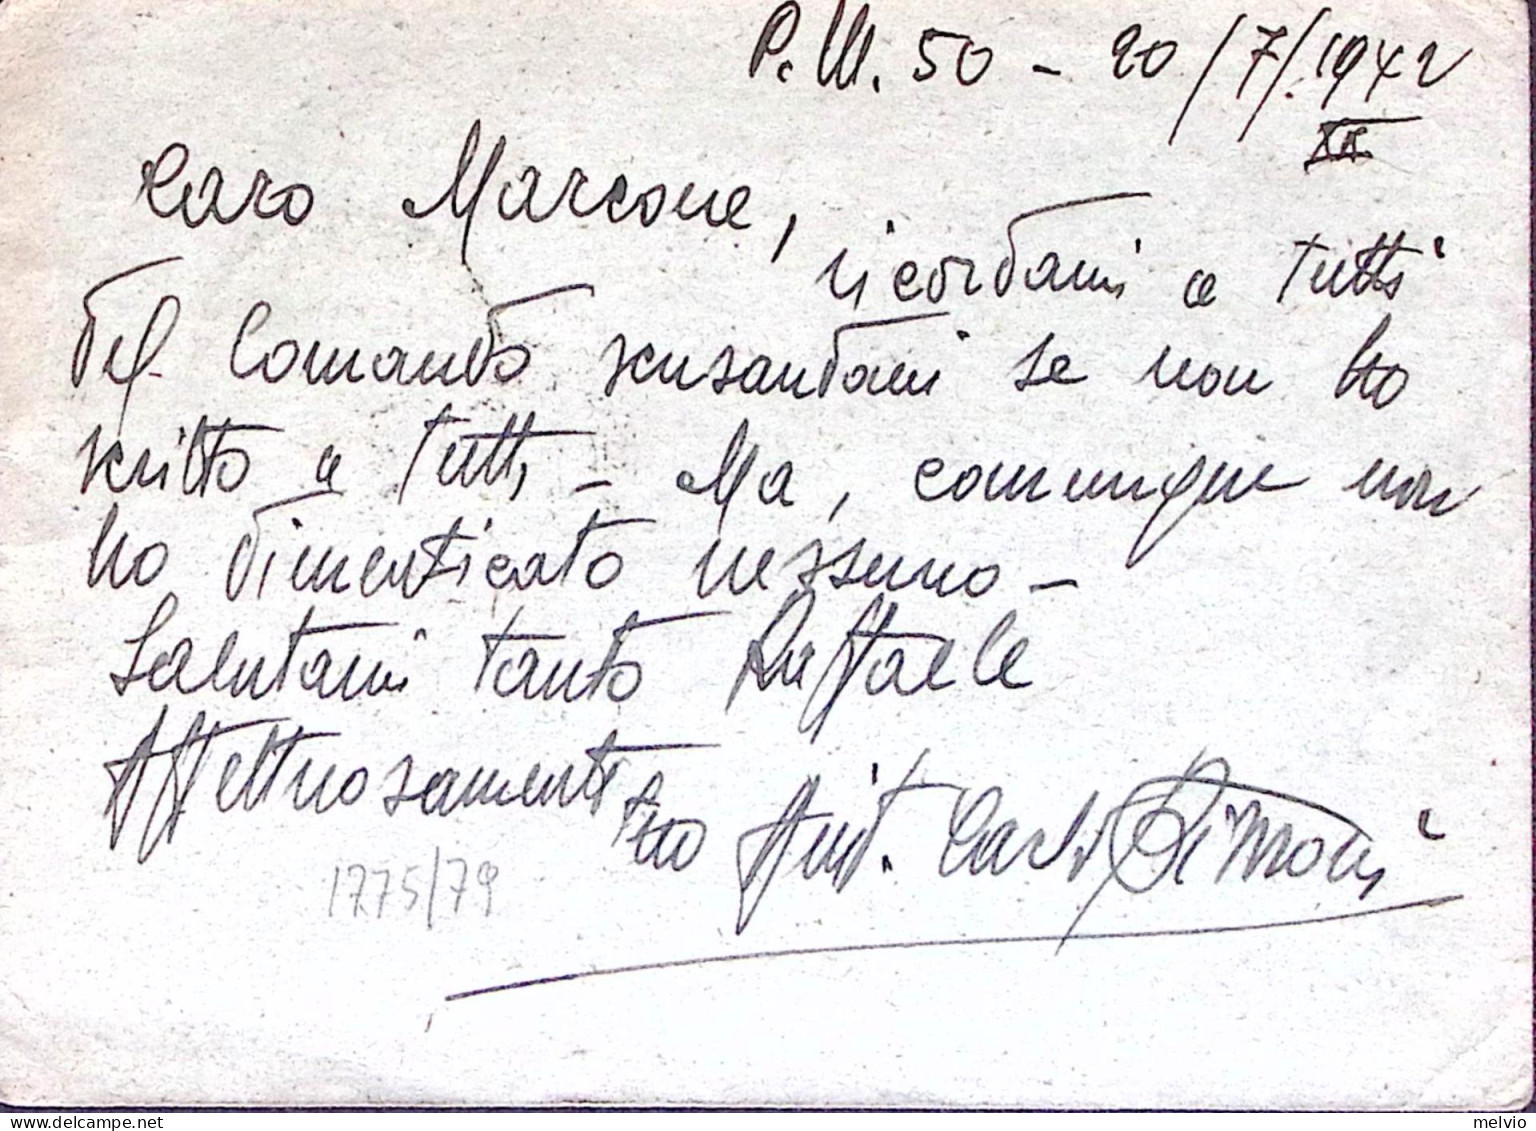 P.M. 50 - 20/7/1942
XX
Caro Marcone,
ricordami a tutti
del Comando scusandomi se non ho
scritto a tutti - Ma, comunque non
ho dimenticato nessuno -
Salutami tanto Raffaele
Affettuosamente
tuo Aiut. Carlo
1775/79
melvio